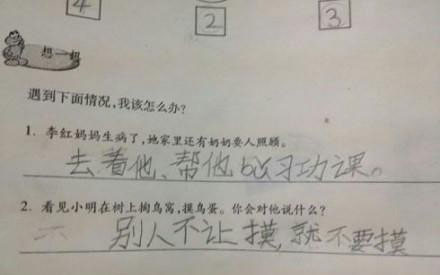 4 2 3
想一想
遇到下面情况,我该怎么办?
1. 李红妈妈生病了,她家里还有奶奶要人照顾。
去看他、帮他bǔ习功课。
2. 看见小明在树上掏鸟窝,摸鸟蛋。你会对他说什么?
别人不让摸,就不要摸